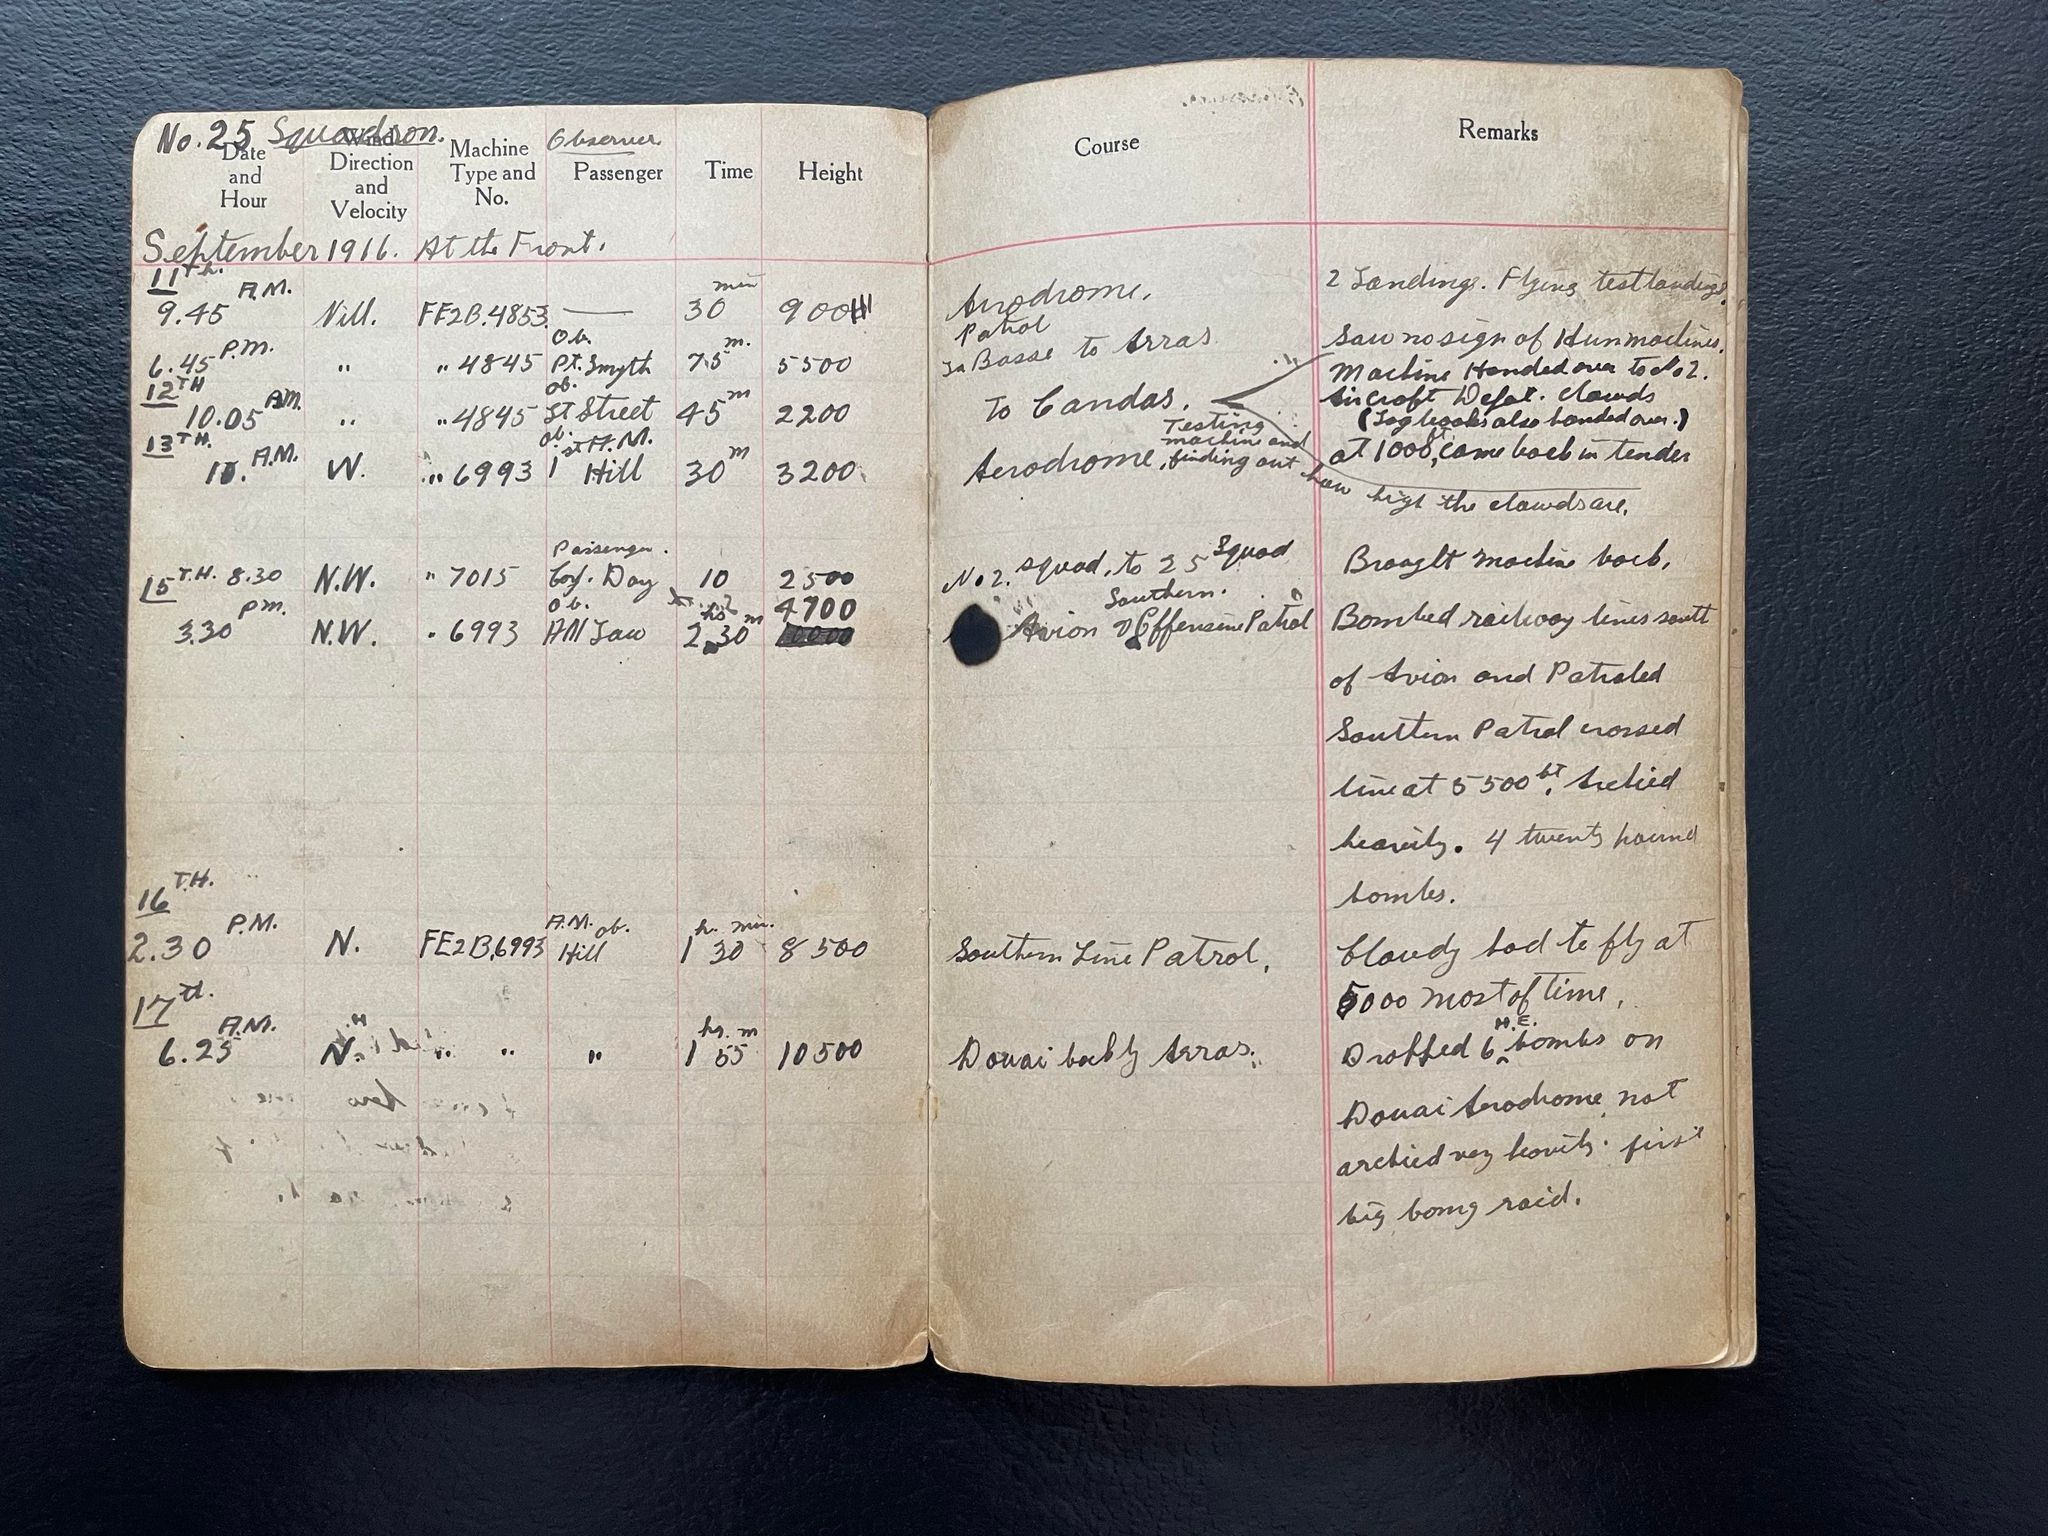 No. 25 Squadron.
Date and Hour
Wind Direction and Velocity
Machine Type and No.
Observer
Passenger
Time
Height
Course
Remarks
September 1916. At the Front.
11th.
9.45 A.M. Nill. FE2B.4853. — 30 min 900 Aerodrome. 2 Landings. Flying test landings.
6.45 P.M. " " 4845 Ob. Pt. Smyth 75 m. 5500 Patrol La Basse to Arras Saw no sign of Hun machines.
12TH
10.05 A.M. " " 4845 ob. Street 45 m 2200 To Candas. Machine Handed over to No 2.
Aircraft Depot. clowds
(Log books also handed over.)
at 1000 ft, came back in tender
13TH.
A.M. W. " 6993 ob. 1st A.M. Hill 30 m 3200 Aerodrome, Testing machine and finding out how high the clowds are.
15T.H. 8.30 N.W. " 7015 Passenger. Day 10 2500 No 2. squad. to 25 Squad Brought machine back.
3.30 P.M. N.W. " 6993 ob. AM Law 2 hrs 30 m 4700 Avion & Offensive Patrol Southern. Bombed railway lines south
of Avion and Patroled
Southern Patrol crossed
line at 5500 ft, Archied
heavily. 4 twenty pound
bombs.
16T.H.
2.30 P.M. N. FE2B.6993 A.M. ob. Hill 1 h. 30 min. 8500 Southern Line Patrol. Cloudy had to fly at
5000 most of time.
17th.
6.25 A.M. N. " " " 1 hr. 55 m 10500 Douai back by Arras. Dropped 6 H.E. bombs on
Douai Aerodrome, not
archied very heavily. first
big bomg raid.